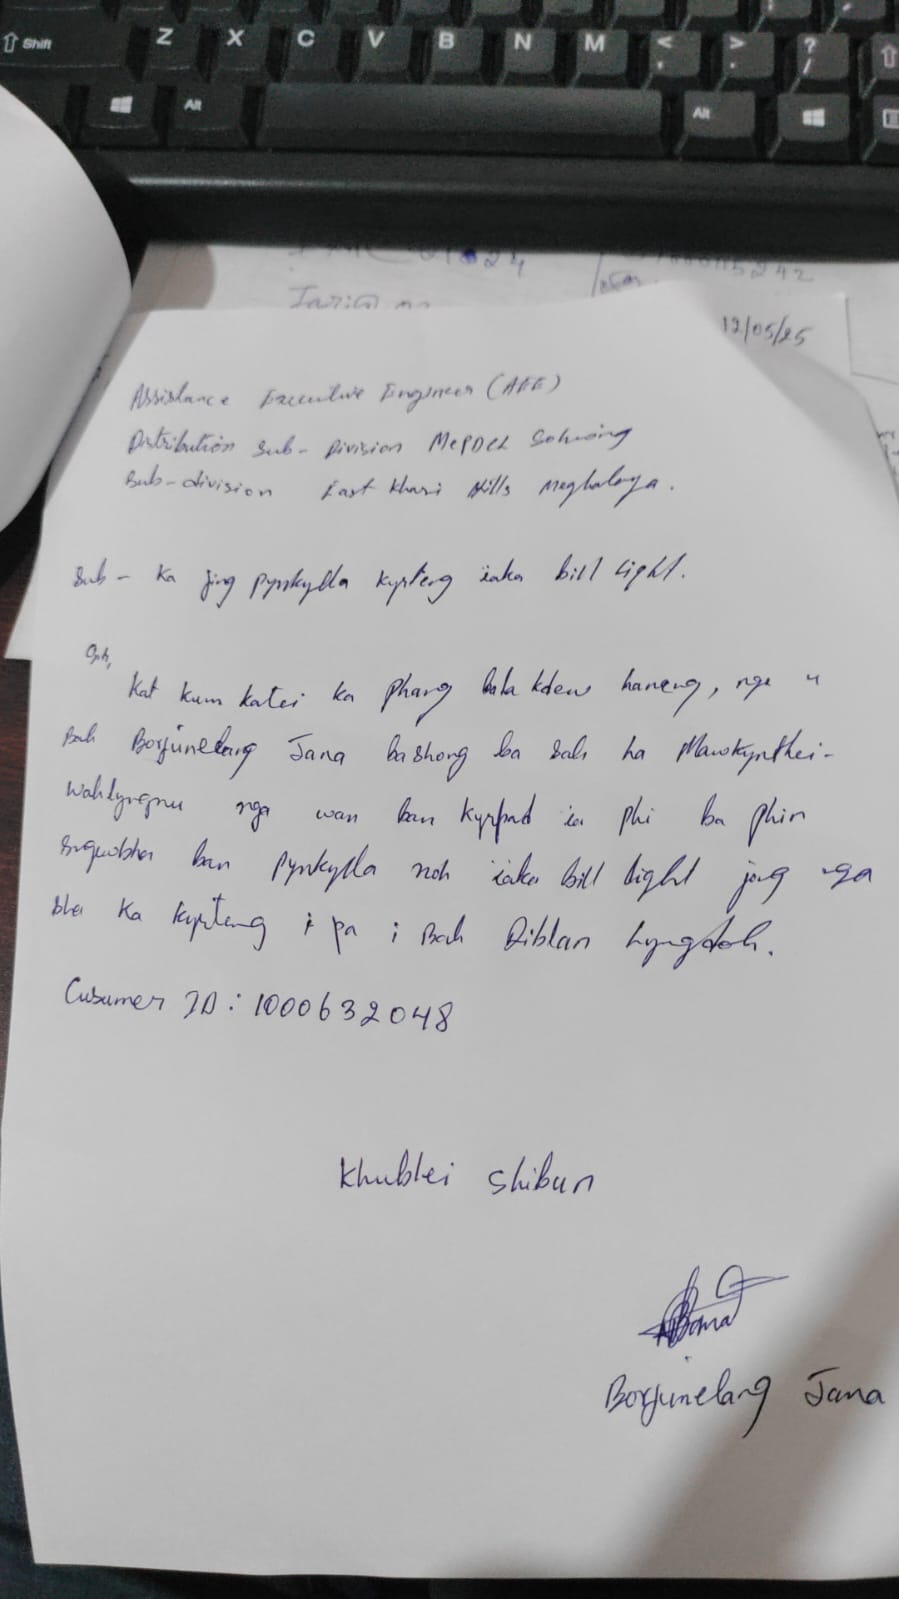 Shift Z X C V B N M < , > . ? /
Alt Alt
12/05/25
Assistance Executive Engineer (AEE)
Distribution Sub-Division MePDCL Sohiong
Sub-division East Khasi Hills Meghalaya.
Sub- Ka jing pynkylla kyrteng iaka bill light.
Kat kum katei ka phang bala kdew haneng, nga u
Bah Borjunelang Jana bashong ba sah ha Mawkynthei-
nga wan ban kyrpad ia phi ba phin
ban pynkylla noh iaka bill light jong nga
sha ka kyrteng i pa i Bah Riblan Lyngdoh.
Cusumer ID: 1000632048
Khublei Shibun
Borjunelang Jana